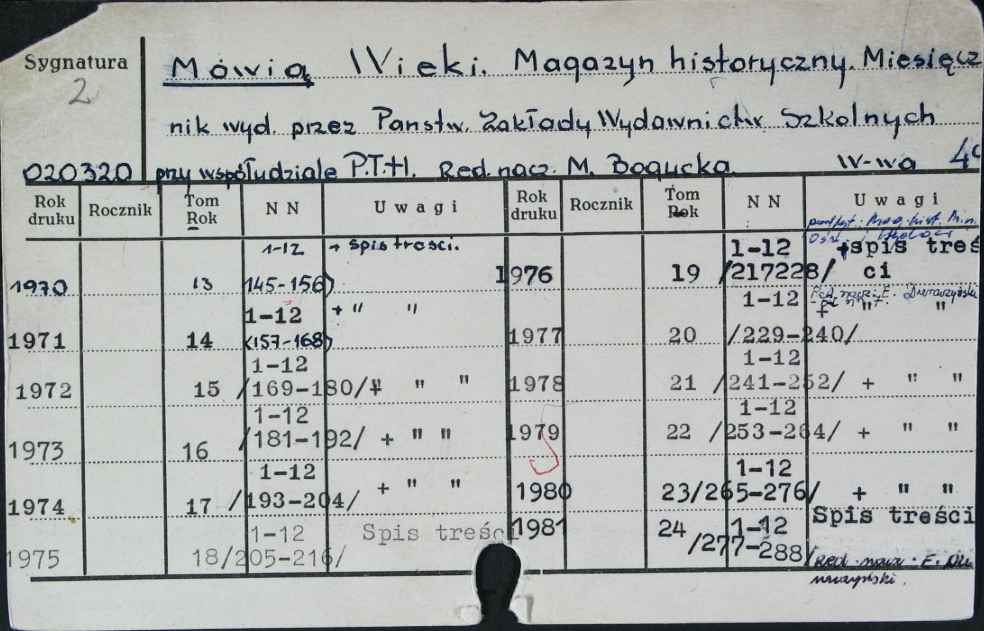 Sygnatura
Mówią Wieki. Magazyn historyczny. Miesięcz
2
nik wyd. przez Państw. Zakłady Wydawnictw Szkolnych
020320 przy współudziale P.T.H. Red. nacz. M. Bogucka. W-wa 4°
Rok druku Rocznik Tom Rok N N Uwagi Rok druku Rocznik Tom Rok N N Uwagi
1970 13 1-12 (145-156) + spis treści.
1971 14 1-12 (157-168) + " "
1972 15 1-12 /169-180/ + " "
1973 16 1-12 /181-192/ + " "
1974 17 1-12 /193-204/ + " "
1975 18 1-12 /205-216/ Spis treści
1976 19 1-12 /217228/ +spis treś ci
1977 20 1-12 /229-240/ + " "
1978 21 1-12 /241-252/ + " "
1979 22 1-12 /253-264/ + " "
1980 23 1-12 /265-276/ + " "
1981 24 1-12 /277-288/ Spis treści
Red. nacz. E.